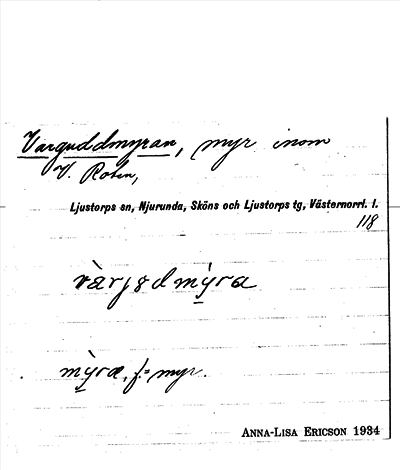 Varguddmyran, myr inom
V. Roten,
Ljustorps sn, Njurunda, Sköns och Ljustorps tg, Västernorrl. l.
118
vàrjɞdmỳra
mỳra, f. = myr.
ANNA-LISA ERICSON 1934